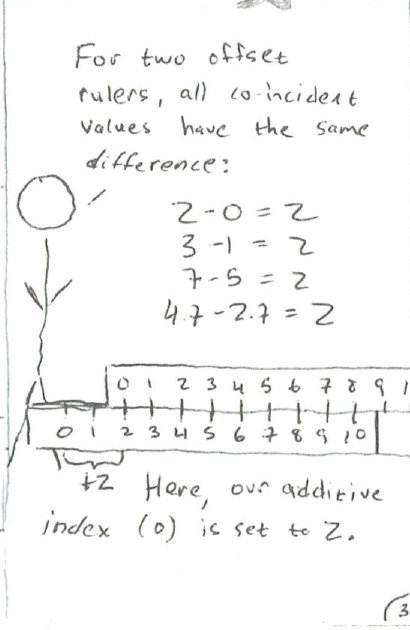 For two offset
rulers, all co-incident
values have the same
difference:
2-0 = 2
3-1 = 2
7-5 = 2
4.7-2.7 = 2
0 1 2 3 4 5 6 7 8 9 1
0 1 2 3 4 5 6 7 8 9 10
+2 Here, our additive
index (0) is set to 2.
3